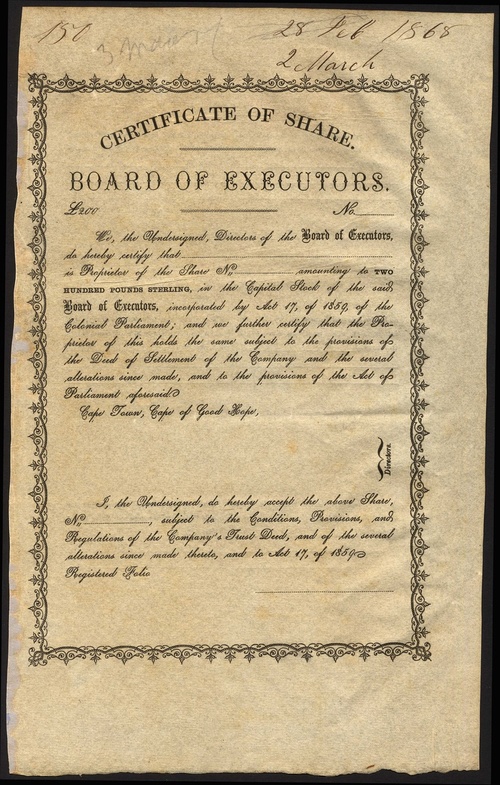 150
28 Feb 1868
2 March
CERTIFICATE OF SHARE.
BOARD OF EXECUTORS.
£200 No.
We, the Undersigned, Directors of the Board of Executors,
do hereby certify that
is Proprietor of the Share No. amounting to TWO
HUNDRED POUNDS STERLING, in the Capital Stock of the said
Board of Executors, incorporated by Act 17, of 1859, of the
Colonial Parliament; and we further certify that the Pro-
prietor of this holds the same subject to the provisions of
the Deed of Settlement of the Company and the several
alterations since made, and to the provisions of the Act of
Parliament aforesaid.
Cape Town, Cape of Good Hope,
Directors.
I, the Undersigned, do hereby accept the above Share,
No. , subject to the Conditions, Provisions, and
Regulations of the Company's Trust Deed, and of the several
alterations since made thereto, and to Act 17, of 1859.
Registered Folio